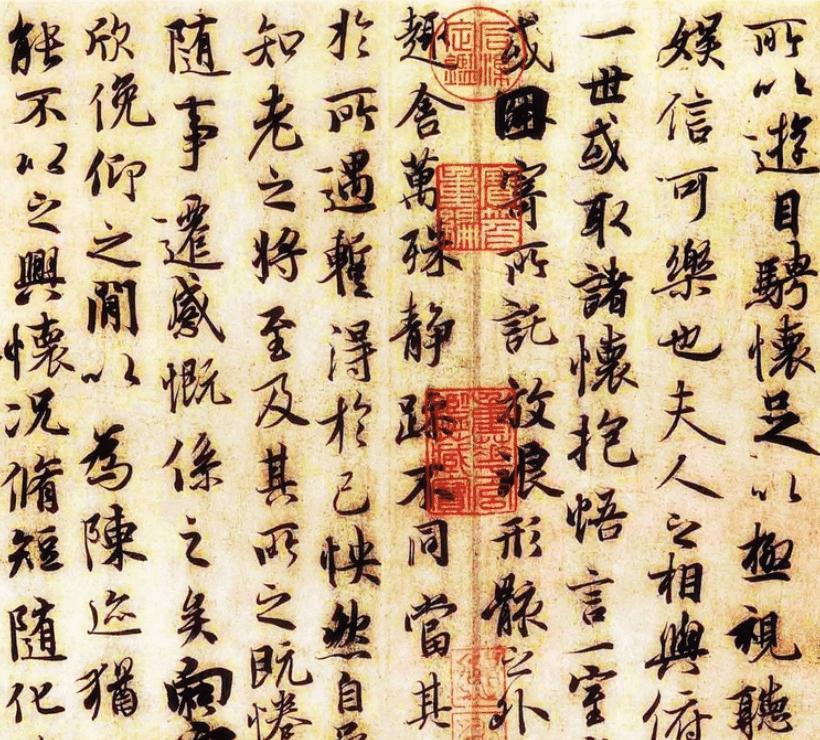 所以遊目騁懷足以極視聽
娛信可樂也夫人之相與俯
一世或取諸懷抱悟言一室
或因寄所託放浪形骸之外
趣舍萬殊静躁不同當其
於所遇暫得於己怏然自
知老之將至及其所之既惓
隨事遷感慨係之矣向
欣俛仰之閒以為陳迹猶
能不以之興懷況脩短隨化